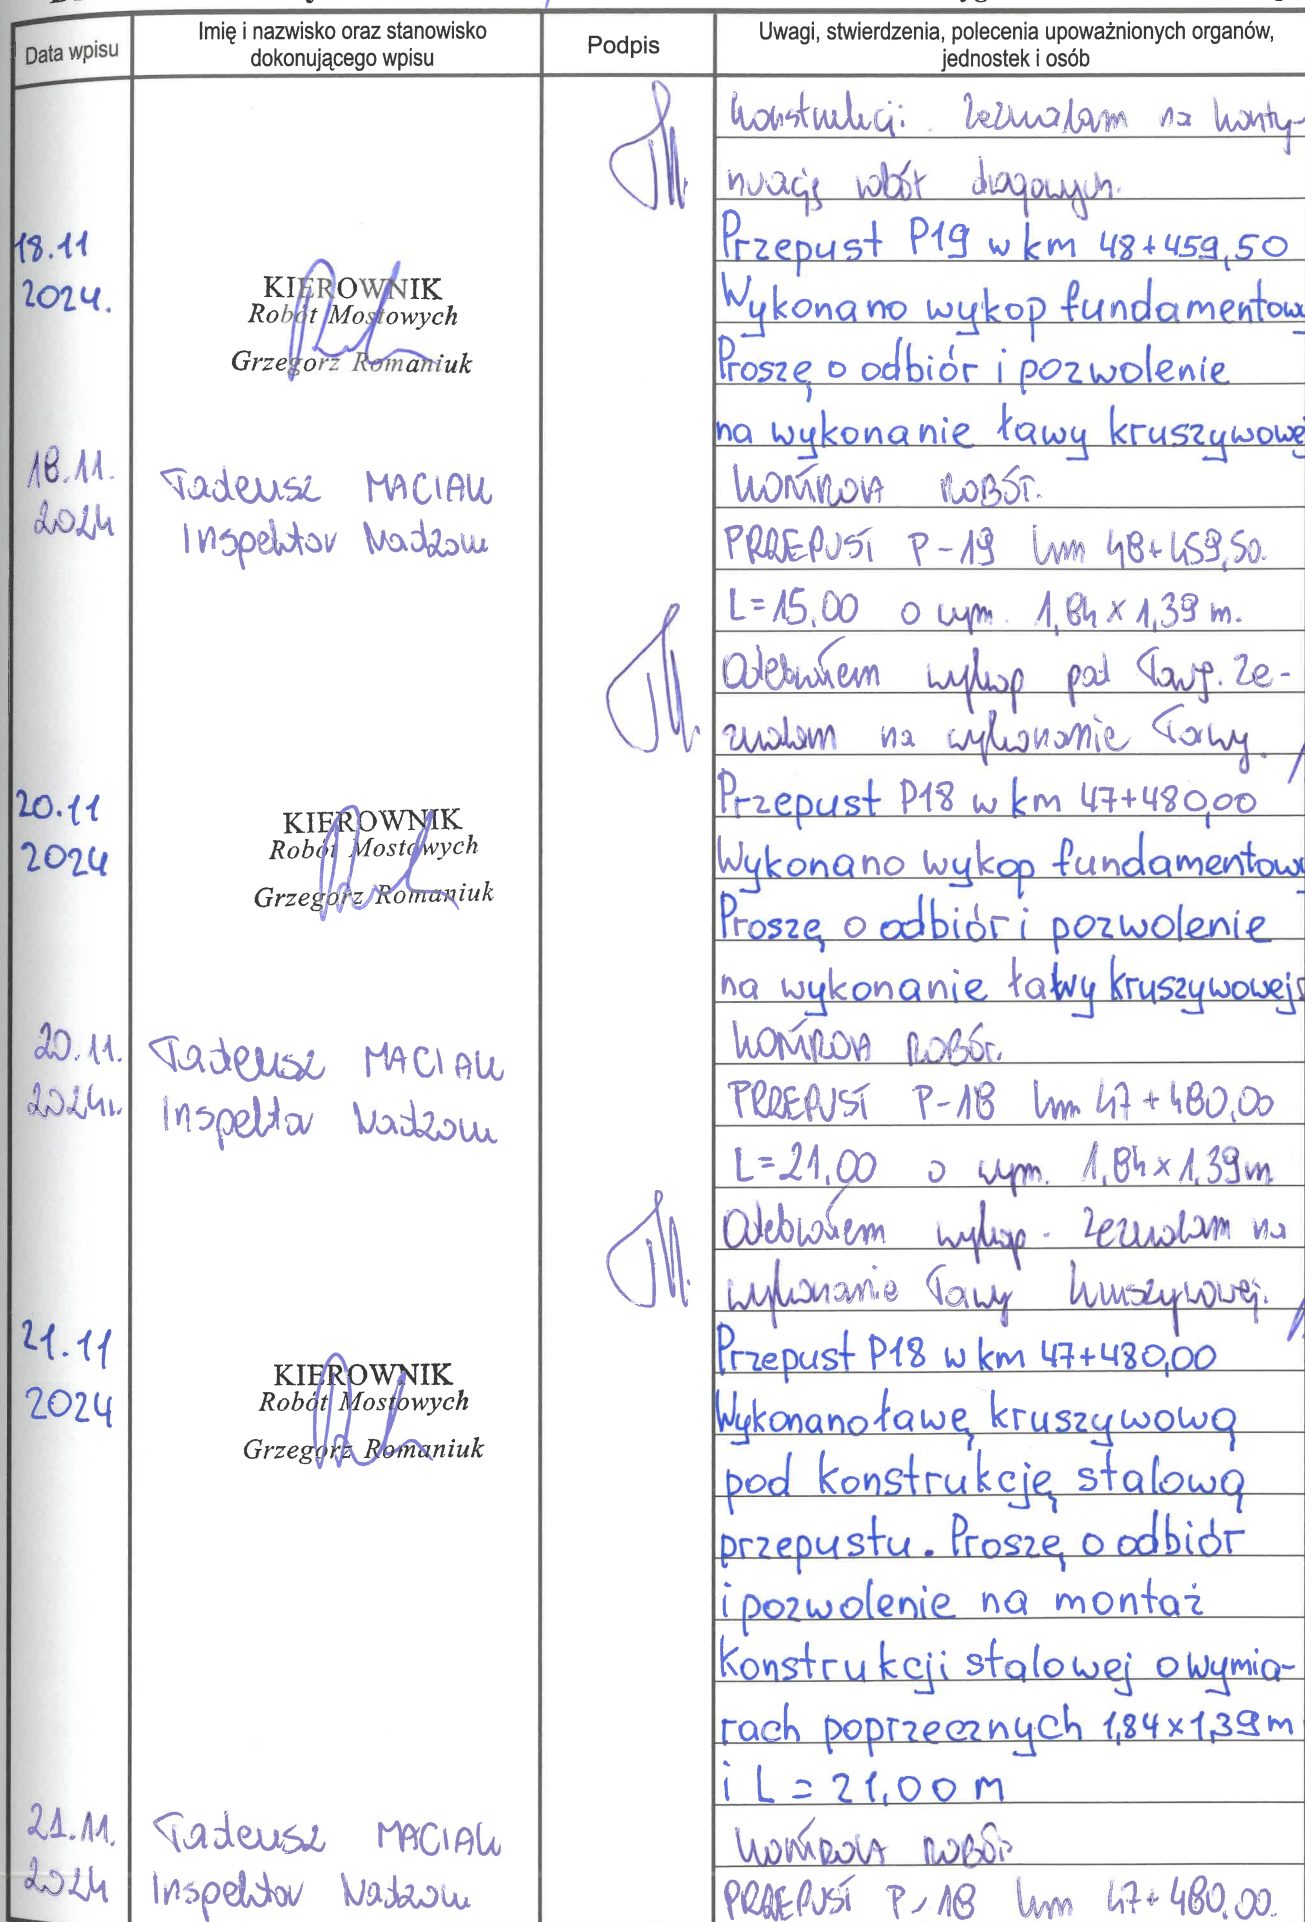 Data wpisu
Imię i nazwisko oraz stanowisko
dokonującego wpisu
Podpis
Uwagi, stwierdzenia, polecenia upoważnionych organów,
jednostek i osób
konstrukcji. Zezwalam na konty-
nuację robót drogowych.
18.11
2024.
KIEROWNIK
Robót Mostowych
Grzegorz Romaniuk
Przepust P19 w km 48+459,50
Wykonano wykop fundamentowy
Proszę o odbiór i pozwolenie
na wykonanie ławy kruszywowej
18.11.
2024
Tadeusz MACIAK
Inspektor Nadzoru
KONTROLA ROBÓT.
PRZEPUST P-19 km 48+459,50.
L=15,00 o wym. 1,84 x 1,39 m.
Odebrałem wykop pod ławę. Ze-
zwalam na wykonanie ławy.
20.11
2024
KIEROWNIK
Robót Mostowych
Grzegorz Romaniuk
Przepust P18 w km 47+480,00
Wykonano wykop fundamentowy
Proszę o odbiór i pozwolenie
na wykonanie ławy kruszywowej
20.11.
2024r.
Tadeusz MACIAK
Inspektor Nadzoru
KONTROLA ROBÓT.
PRZEPUST P-18 km 47+480,00
L=21,00 o wym. 1,84 x 1,39 m
Odebrałem wykop. Zezwalam na
wykonanie ławy kruszywowej.
21.11
2024
KIEROWNIK
Robót Mostowych
Grzegorz Romaniuk
Przepust P18 w km 47+480,00
Wykonano ławę kruszywową
pod konstrukcję stalową
przepustu. Proszę o odbiór
i pozwolenie na montaż
konstrukcji stalowej o wymia-
rach poprzecznych 1,84 x 1,39 m
i L = 21,00 m
21.11.
2024
Tadeusz MACIAK
Inspektor Nadzoru
KONTROLA ROBÓT
PRZEPUST P-18 km 47+480,00.